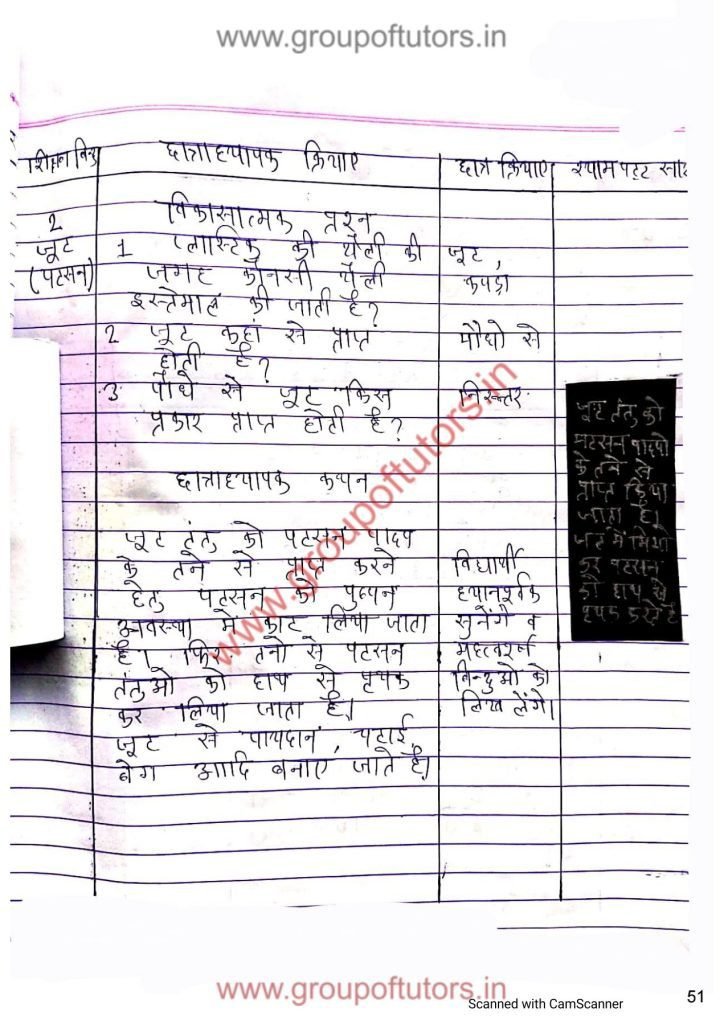 www.groupoftutors.in
शिक्षण बिन्दु छात्राध्यापक क्रियाए छात्र क्रियाए श्यामपट्ट
विकासात्मक प्रश्न
2
जूट
(पटसन)
1 प्लास्टिक की थैली की
जगह कौनसी थैली
इस्तेमाल की जाती है?
2 जूट कहां से प्राप्त
होती है?
3 पौधे से जूट किस
प्रकार प्राप्त होती है?
छात्राध्यापक कथन
जूट तंतु को पटसन पादप
के तने से प्राप्त करने
हेतु पटसन को पुष्पन
अवस्था में काट लिया जाता
है। फिर तनो से पटसन
तंतुओ को हाथ से पृथक
कर लिया जाता है।
जूट से पायदान, चटाई,
बेग आदि बनाए जाते है।
जूट,
कपड़ा
पौधो से
निरुत्तर
विद्यार्थी
ध्यानपूर्वक
सुनेंगे व
महत्वपूर्ण
बिन्दुओ को
लिख लेंगे।
जूट तंतु को
पटसन पादपो
के तने से
प्राप्त किया
जाता है।
कर पटसन
को हाथ से
पृथक करते है
www.groupoftutors.in
www.groupoftutors.in
Scanned with CamScanner
51